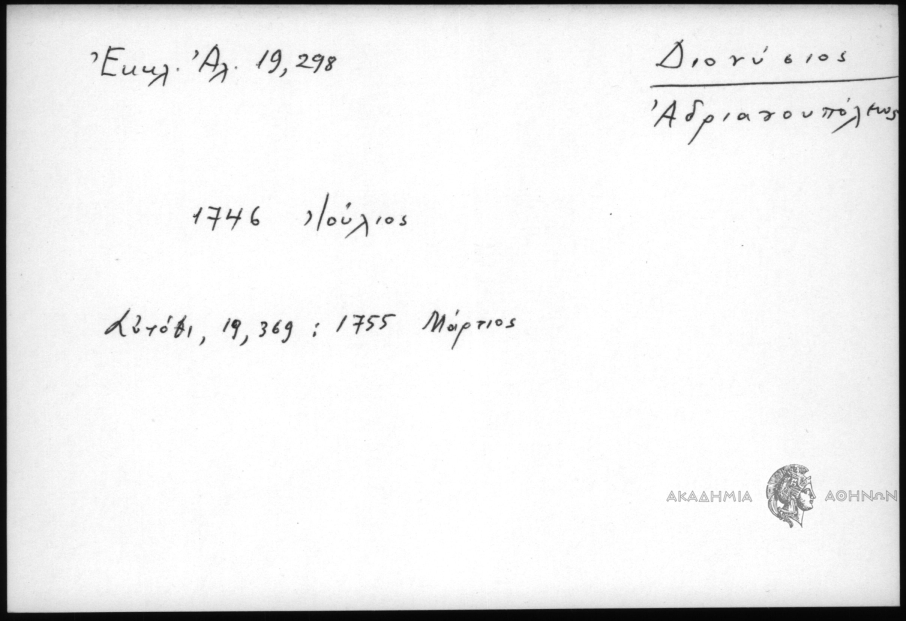 Ἐκκλ. Ἀλ. 19,298
Διονύσιος
Ἀδριανουπόλεως
1746 Ἰούλιος
Αὐτόθι, 19, 369 : 1755 Μάρτιος
ΑΚΑΔΗΜΙΑ ΑΘΗΝΩΝ